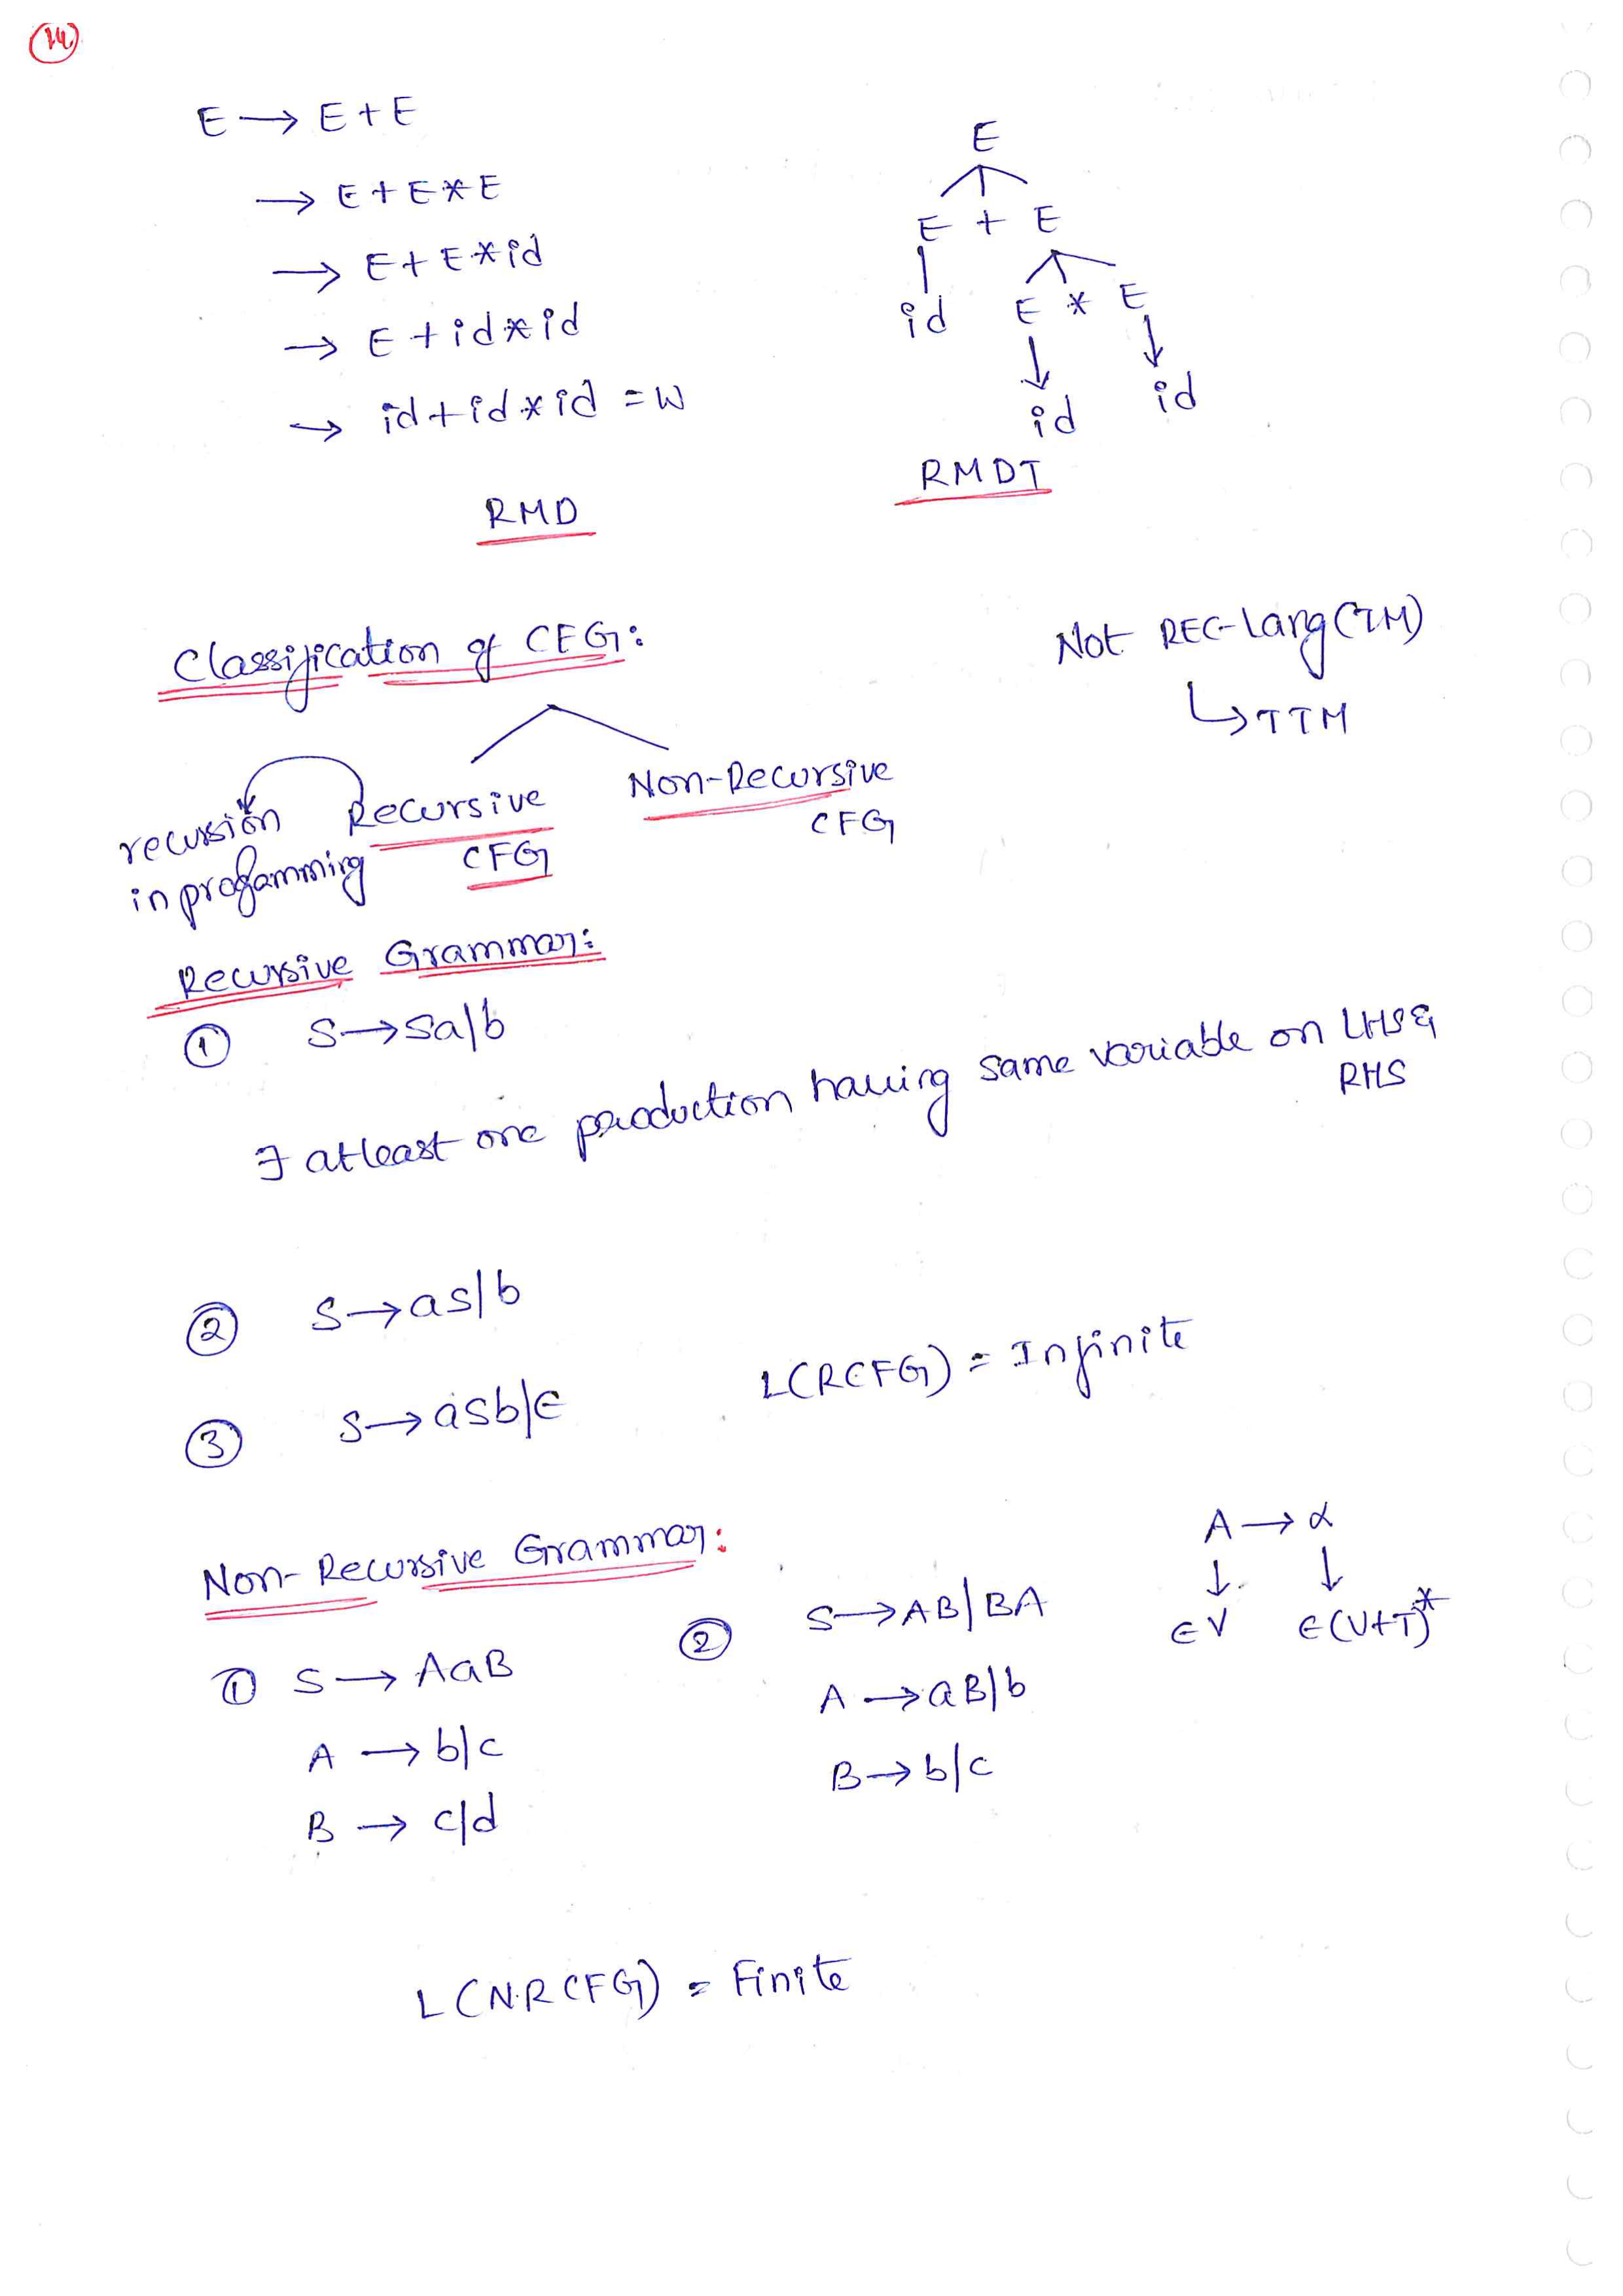 14
E → E + E
→ E + E * E
→ E + E * id
→ E + id * id
→ id + id * id = W
RMD
E
E + E
id E * E
id id
RMDT
Classification of CFG:
Not REC-Lang (TM)
↳ TTM
recursion in progamming
Recursive CFG
Non-Recursive CFG
Recursive Grammar:
① S → Sa/b
∃ atleast one production having same variable on LHS &
RHS
② S → aS/b
③ S → aSb/ϵ
L(RCFG) = Infinite
Non-Recursive Grammar:
① S → AaB
A → b/c
B → c/d
② S → AB/BA
A → aB/b
B → b/c
A → α
↓ ↓
∈ V ∈ (V+T)*
L(N.RCFG) = Finite